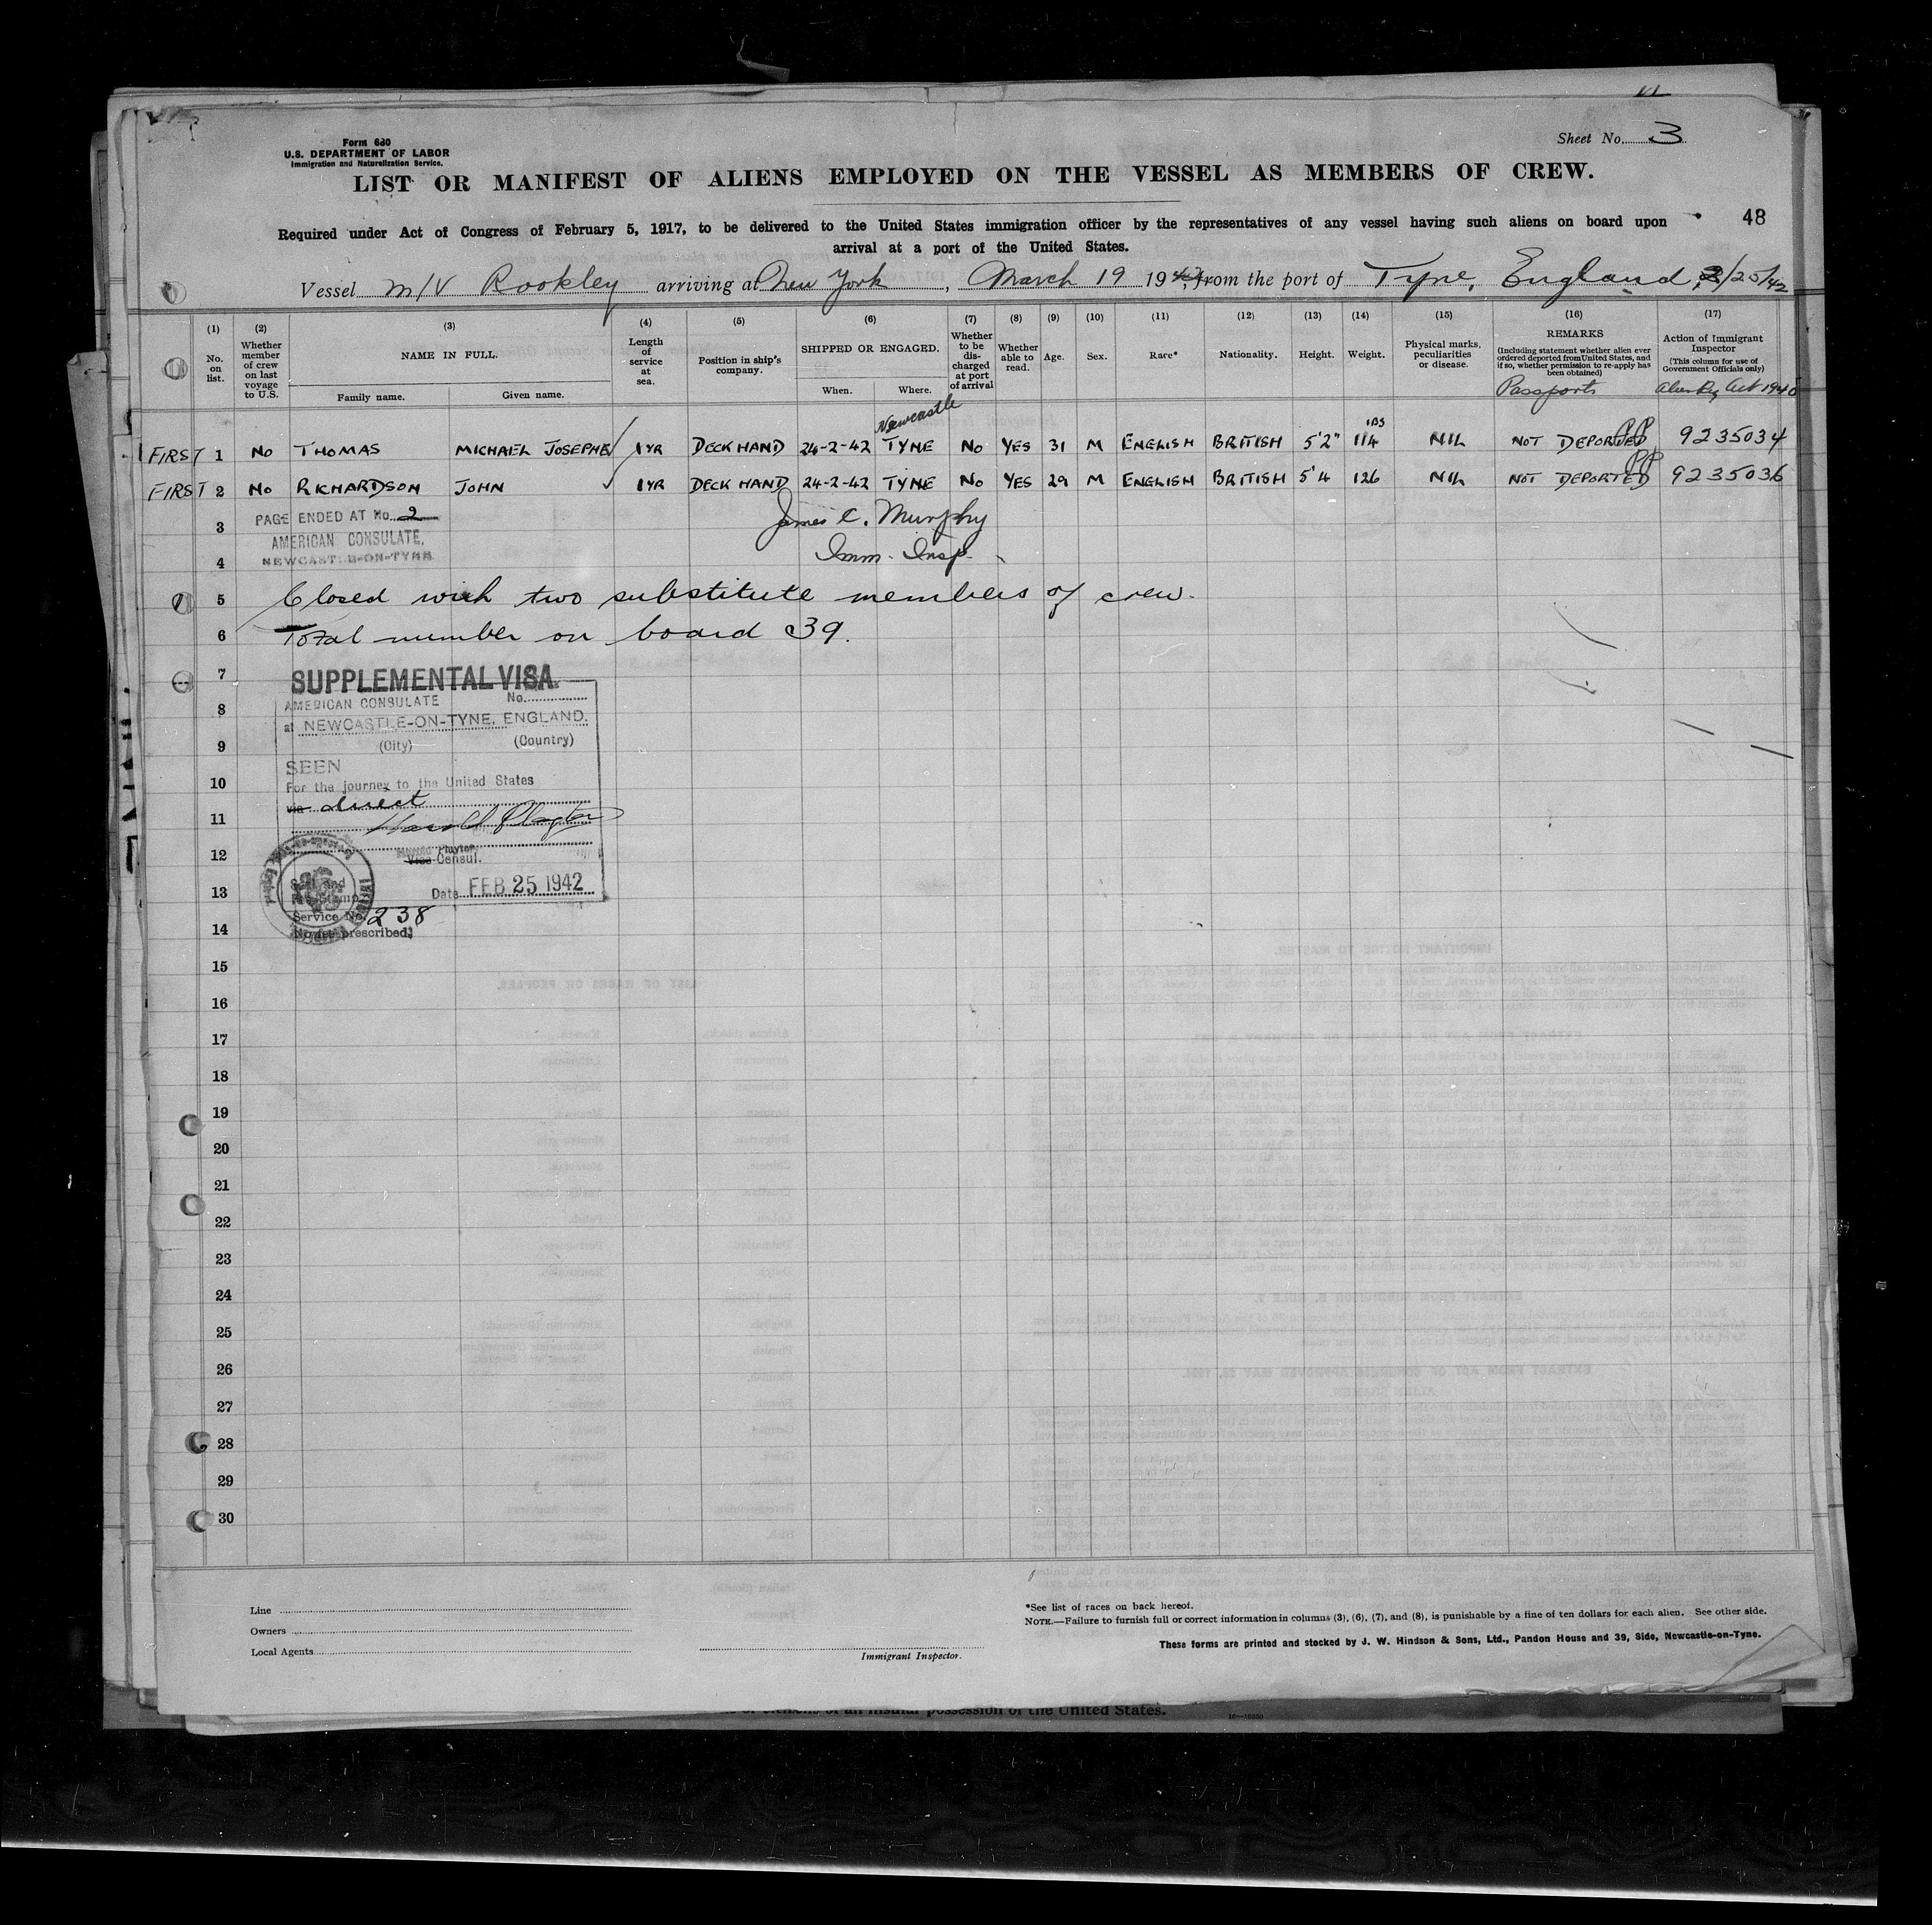 Form 680
U.S. DEPARTMENT OF LABOR
Immigration and Naturalization Service.
Sheet No. 3
LIST OR MANIFEST OF ALIENS EMPLOYED ON THE VESSEL AS MEMBERS OF CREW.
48
Required under Act of Congress of February 5, 1917, to be delivered to the United States immigration officer by the representatives of any vessel having such aliens on board upon
arrival at a port of the United States.
Vessel M/V Rookley arriving at New York, March 19 1942, from the port of Tyne, England, 2/25/42
(1) (2) (3) (4) (5) (6) (7) (8) (9) (10) (11) (12) (13) (14) (15) (16) (17)
No. on list.
Whether member of crew on last voyage to U.S.
NAME IN FULL.
Family name. Given name.
Length of service at sea.
Position in ship's company.
SHIPPED OR ENGAGED.
When. Where.
Whether to be discharged at port of arrival
Whether able to read.
Age. Sex. Race* Nationality. Height. Weight.
Physical marks, peculiarities or disease.
REMARKS
(Including statement whether alien ever ordered deported from United States, and if so, whether permission to re-apply has been obtained)
Passports
Action of Immigrant Inspector
(This column for use of Government Officials only)
Alien Reg Act 1940
Newcastle
lbs
FIRST 1 No THOMAS MICHAEL JOSEPH 1 YR DECK HAND 24-2-42 TYNE No YES 31 M ENGLISH BRITISH 5'2" 114 NIL NOT DEPORTED PP 9235034
FIRST 2 No RICHARDSON JOHN 1 YR DECK HAND 24-2-42 TYNE No YES 29 M ENGLISH BRITISH 5'4 126 NIL NOT DEPORTED PP 9235036
3 PAGE ENDED AT No. 2 James C. Murphy
AMERICAN CONSULATE,
4 NEWCASTLE-ON-TYNE Imm. Insp.
5 Closed with two substitute members of crew.
6 Total number on board 39.
7 SUPPLEMENTAL VISA
AMERICAN CONSULATE No.
8 at NEWCASTLE-ON-TYNE, ENGLAND.
9 (City) (Country)
SEEN
10 For the journey to the United States
via direct
11 Harold Playter
Harold Playter
12 Vice Consul.
13 Seal and Fee Stamp Date FEB 25 1942
Service No. 238
14 No fee prescribed.
15
16
17
18
19
20
21
22
23
24
25
26
27
28
29
30
Line
Owners
Local Agents
Immigrant Inspector.
*See list of races on back hereof.
NOTE.—Failure to furnish full or correct information in columns (3), (6), (7), and (8), is punishable by a fine of ten dollars for each alien. See other side.
These forms are printed and stocked by J. W. Hindson & Sons, Ltd., Pandon House and 39, Side, Newcastle-on-Tyne.
of an insular possession of the United States.